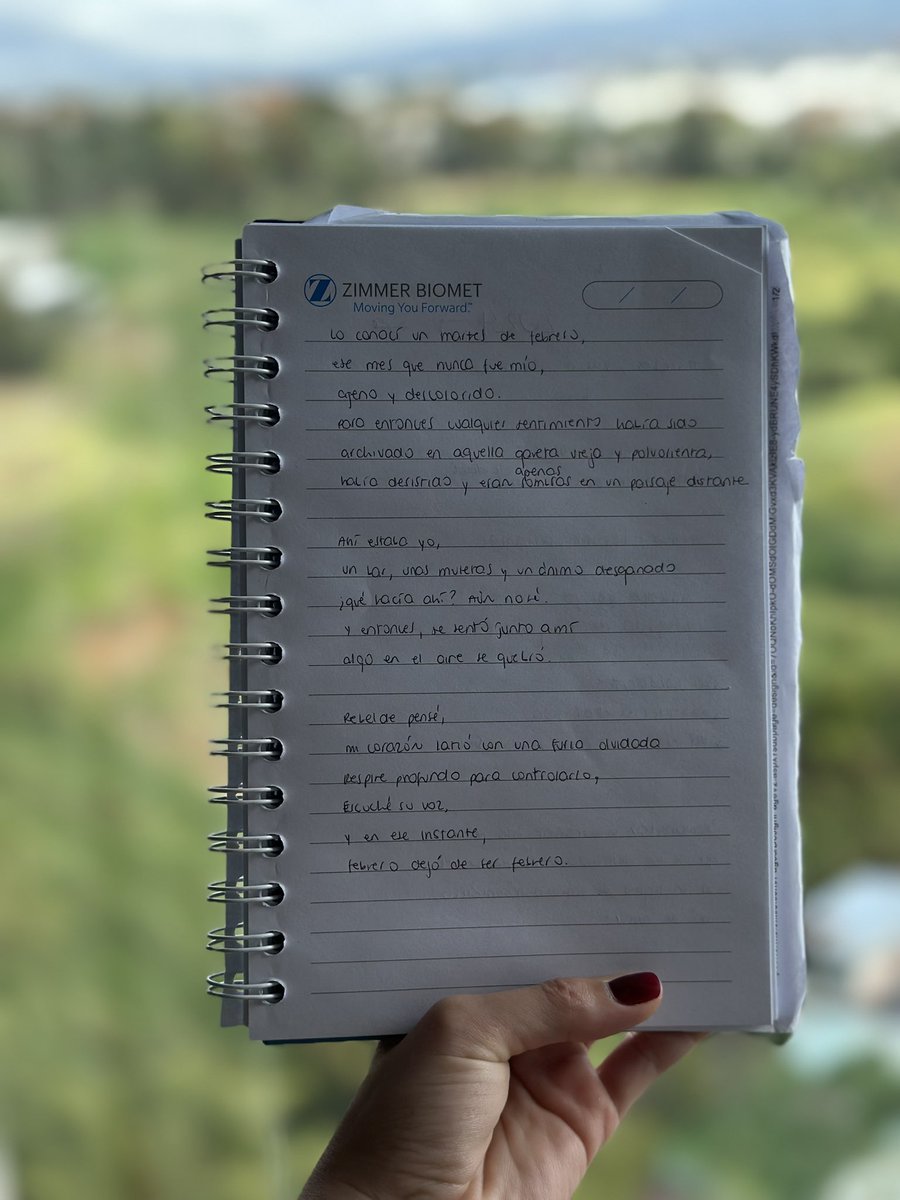 ZIMMER BIOMET
Moving You Forward.™
Lo conocí un martes de febrero,
ese mes que nunca fue mío,
ageno y descolorido.
Para entonces cualquier sentimiento había sido
archivado en aquella gaveta vieja y polvorienta,
apenas
había desistido y eran sombras en un paisaje distante
Ahí estaba yo,
un bar, unas muletas y un ánimo desganado
¡qué hacía ahí? Aún no sé.
y entonces, se sentó junto a mí
algo en el aire se quebró.
Rebelde pensé,
mi corazón latió con una furia olvidada
Respire profundo para controlarlo,
Escuché su voz,
y en ese instante,
febrero dejó de ser febrero.
1/2